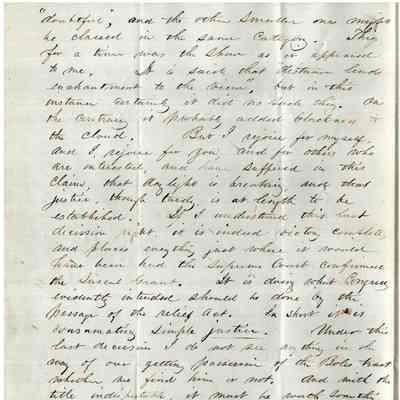 "doubtful", and the other smaller one might
be classed in the same Category. This
for a time was the Show as it appeared
to me. It is said that distance lends
enchantment to the scene, but in this
instance certainly it did no such thing. On
the contrary it probably added blackness to
the cloud. But I rejoice for myself,
and I rejoice for you and for others who
are interested, and have suffered in this
claim, that daylight is breaking and that
justice, though tardy, is at length to be
established. If I understand this last
decision right it is indeed victory complete
and places everything just where it would
have been had the Supreme Court confirmed
the Grant. It is doing what Congress
evidently intended should be done by the
passage of the relief Act. In short it is
consummating simple justice. Under this
last decision I do not see anything in the
way of our getting possession of the tract
whether we find him or not. And with the
title indisputable, it must be worth something